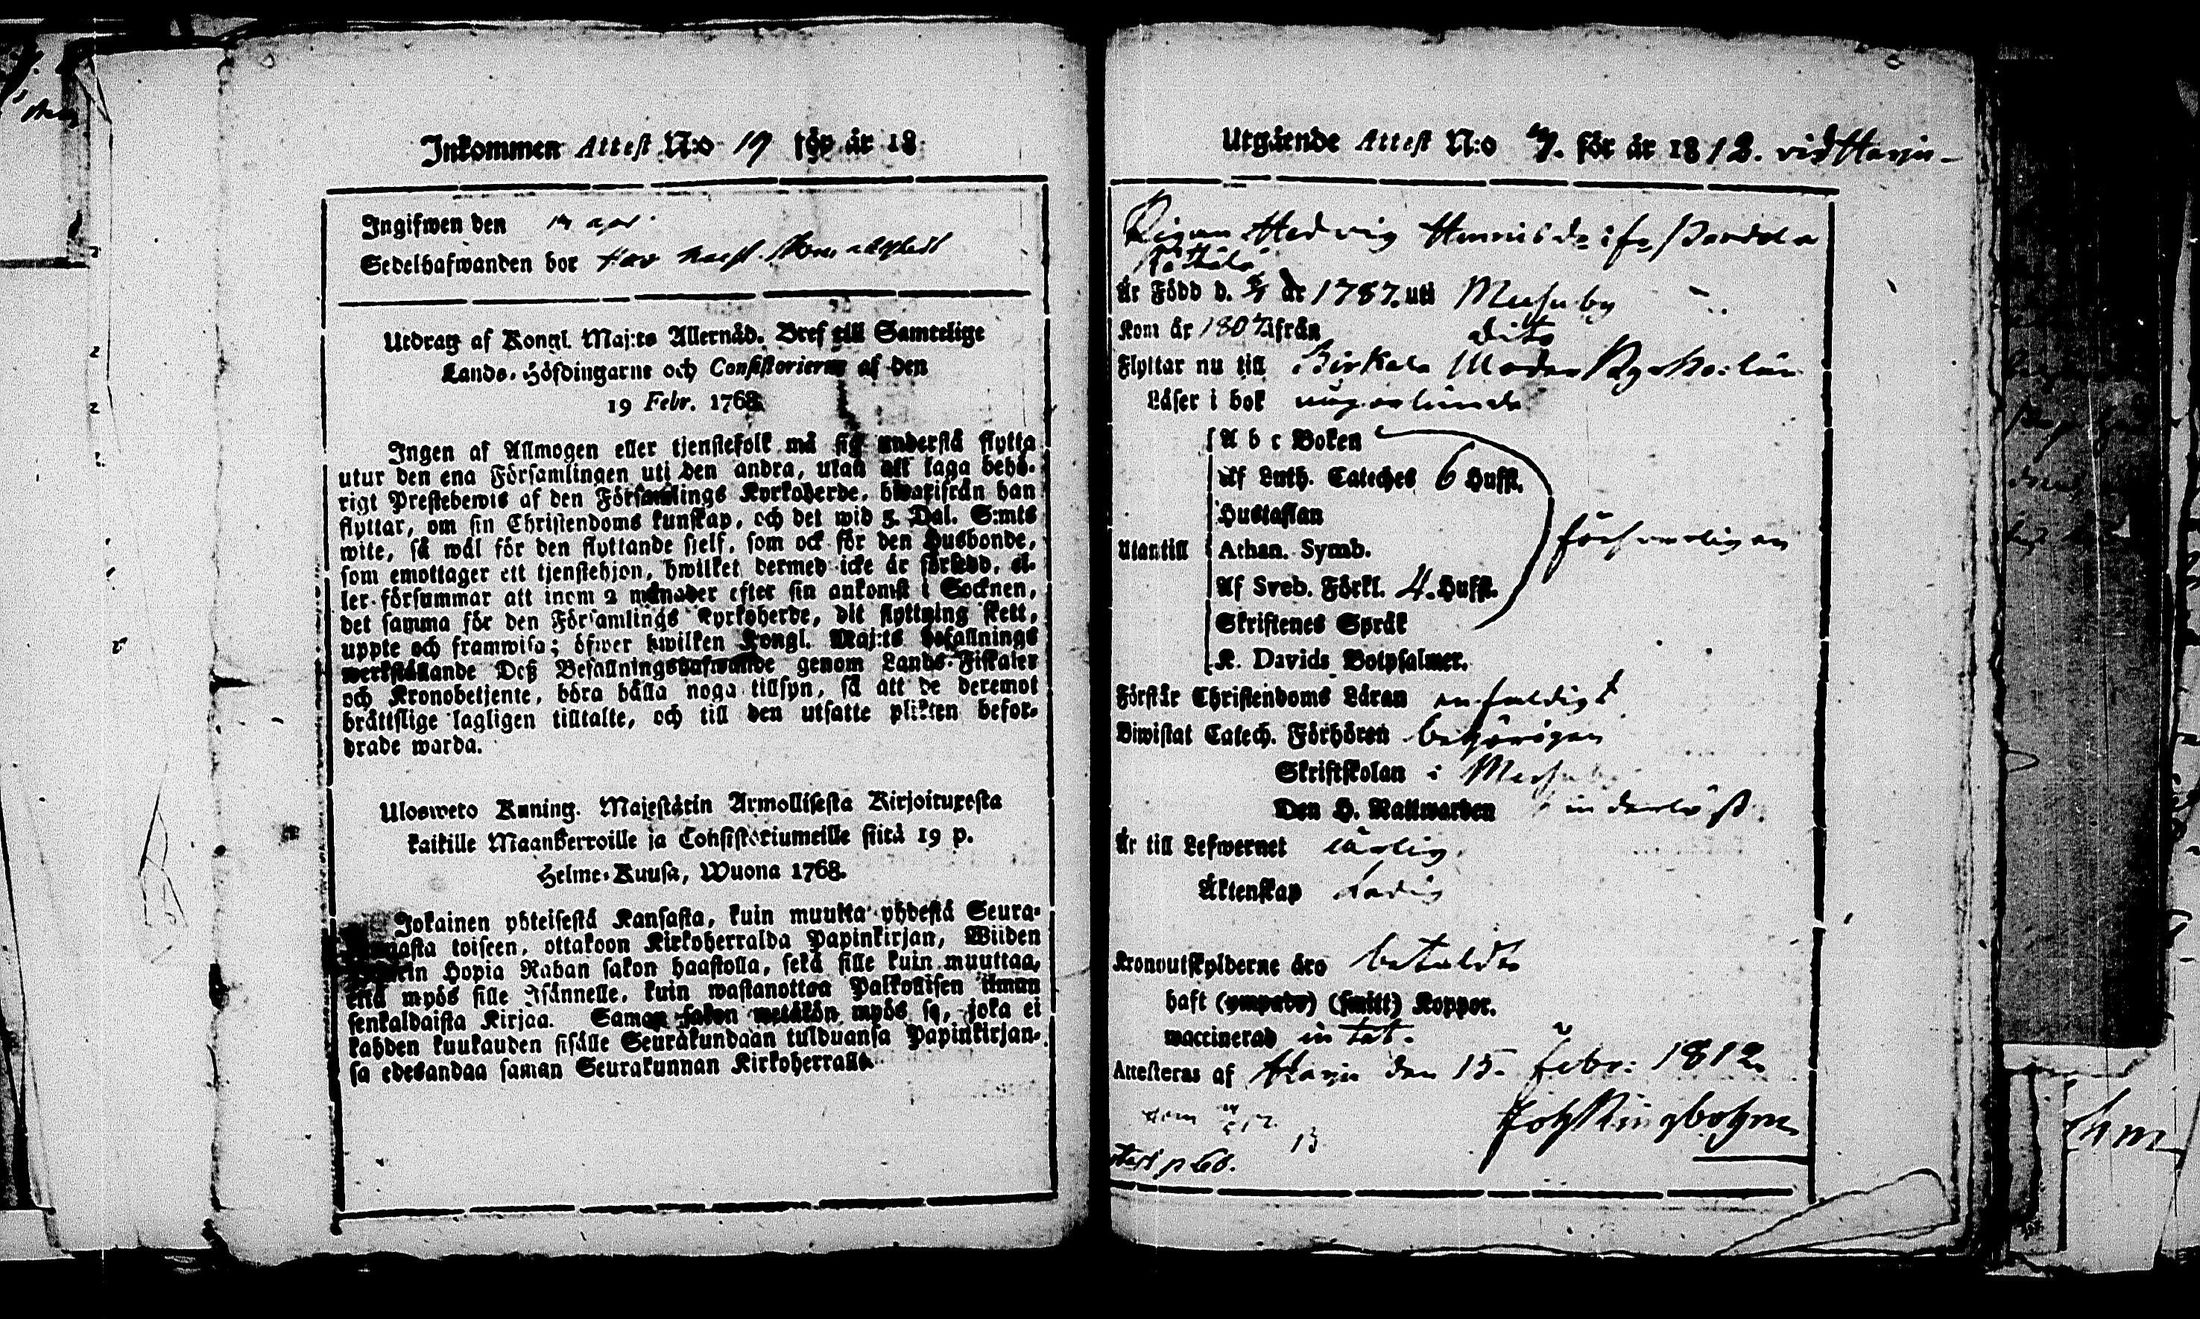 Inkommen Attest N:o 19 för år 18
Ingifwen den 14 apr
Sedelhafwanden bor
Utdrag af Kongl. Maj:ts Allernåd. Bref till Samtelige
Lands-Höfdingarne och Consistorierne af den
19 Febr. 1768.
Ingen af Allmogen eller tjenstefolk må sig understå flytta
utur den ena Församlingen uti den andra, utan att taga behö-
rigt Prestebewis af den Församlings Kyrkoherde, hwarifrån han
flyttar, om sin Christendoms kunskap, och det wid 5 Dal. S:mts
wite, så wäl för den flyttande sjelf, som ock för den Husbonde,
som emottager ett tjenstehjon, hwilket dermed icke är försedd, el-
ler försummar att inom 2 månader efter sin ankomst i Socknen,
det samma för den Församlings Kyrkoherde, dit flyttning skett,
uppte och framwisa; öfwer hwilken Kongl. Maj:ts befallnings
werkställande Deß Befallningshafwande genom Lands-Fiskaler
och Kronobetjente, böra hålla noga tillsyn, så att de deremot
bråttslige lagligen tilltalte, och till den utsatte plikten befor-
drade warda.
Ulosweto Kuning. Majestätin Armollisesta Kirjoituxesta
kaikille Maanherroille ja Consistoriumeille siitä 19 p.
Helme-Kuusa, Wuona 1768.
Jokainen yhteisestä Kansasta, kuin muutta yhdestä Seura-
nasta toiseen, ottakoon Kirkoherralda Papinkirjan, Wiiden
Hopia Rahan sakon haastolla, sekä sille kuin muuttaa,
että myös sille Isännelle, kuin wastanottaa Palkollisen ilman
senkaldaista Kirjaa. Saman sakon wetäkön myös se, joka ei
kahden kuukauden sisälle Seurakundaan tulduansa Papinkirjan-
sa edesandaa saman Seurakunnan Kirkoherralle.
Utgående Attest N:o 7. för år 1812. vid Harju
Pigan Hedvig Henricsdr ifr
Är Född d. år 1787. uti
Kom år 1807 ifrån dito
Flyttar nu till Birkala Moder Kyrko:
Läser i bok
A b c Boken
Af Luth. Cateches 6 Hufst.
Hustaflan
Utantill Athan. Symb. försvarligen
Af Sveb. Förkl. 4. Hufst.
Skriftenes Språk
K. Davids Botpsalmer.
Förstår Christendoms Läran enfaldigt
Biwistat Catech. Förhören behörigen
Skriftskolan i
Den H. Nattwarden
Är till Lefwernet ärlig
Äktenskap Ledig
Kronoutskylderne äro betaldte
haft (ympade) (smitt) Koppor.
waccinerad
Attesteras af Harju den 15. Febr: 1812